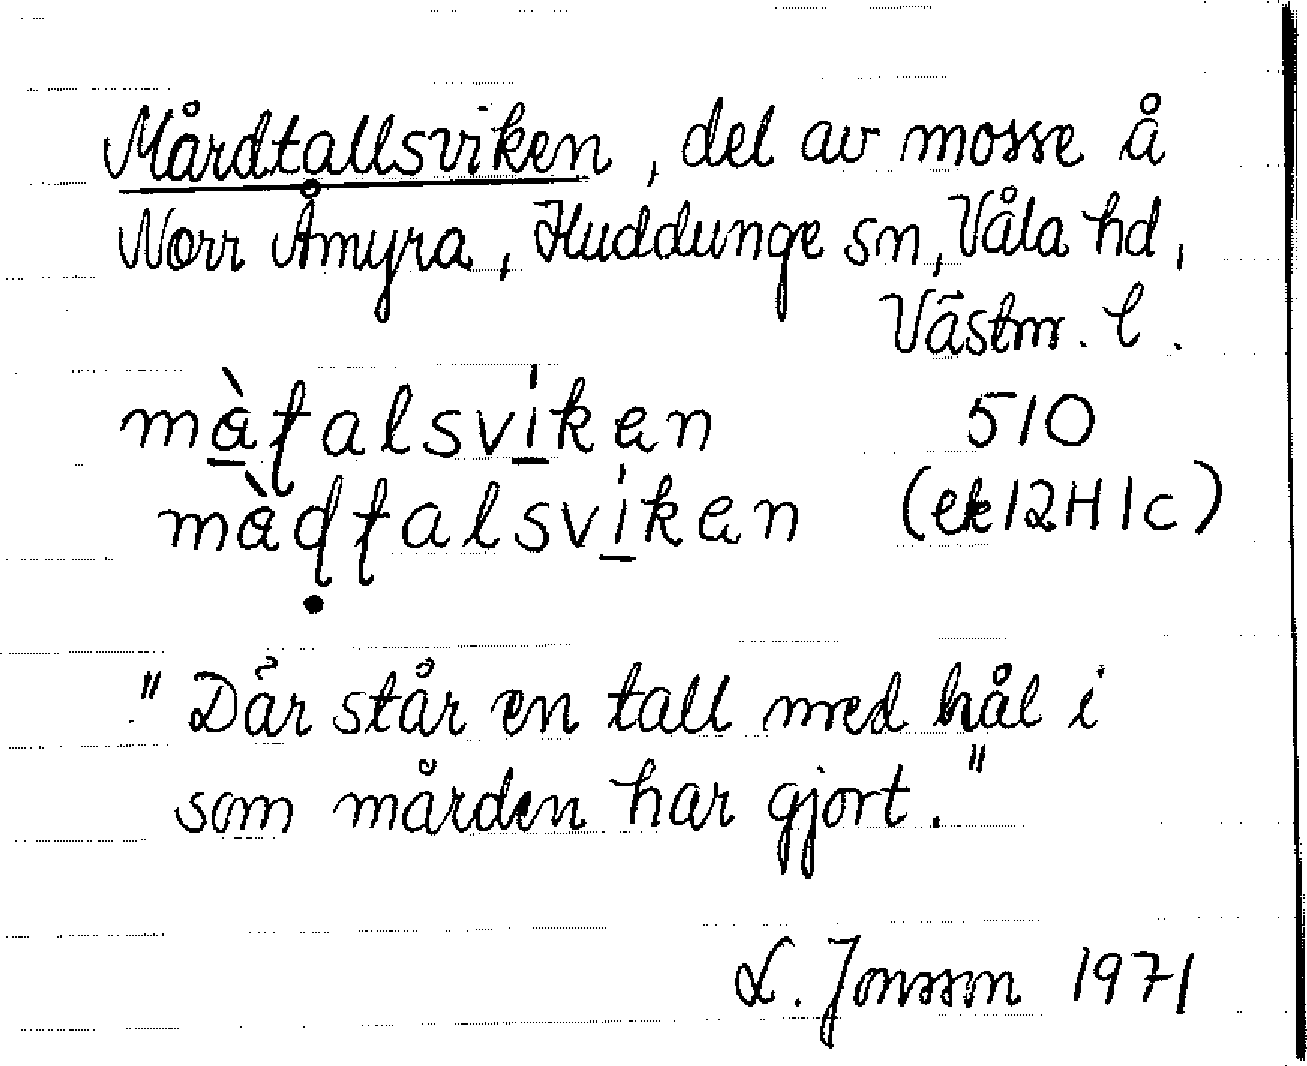 Mårdtallsviken, del av mosse å
Norr Åmyra, Huddunge sn, Våla hd,
Västm. l.
màʈalsvikan 510
màɖʈalsvikan (ek 12H1c)
"Där står en tall med hål i
som mården har gjort."
L. Jonsson 1971